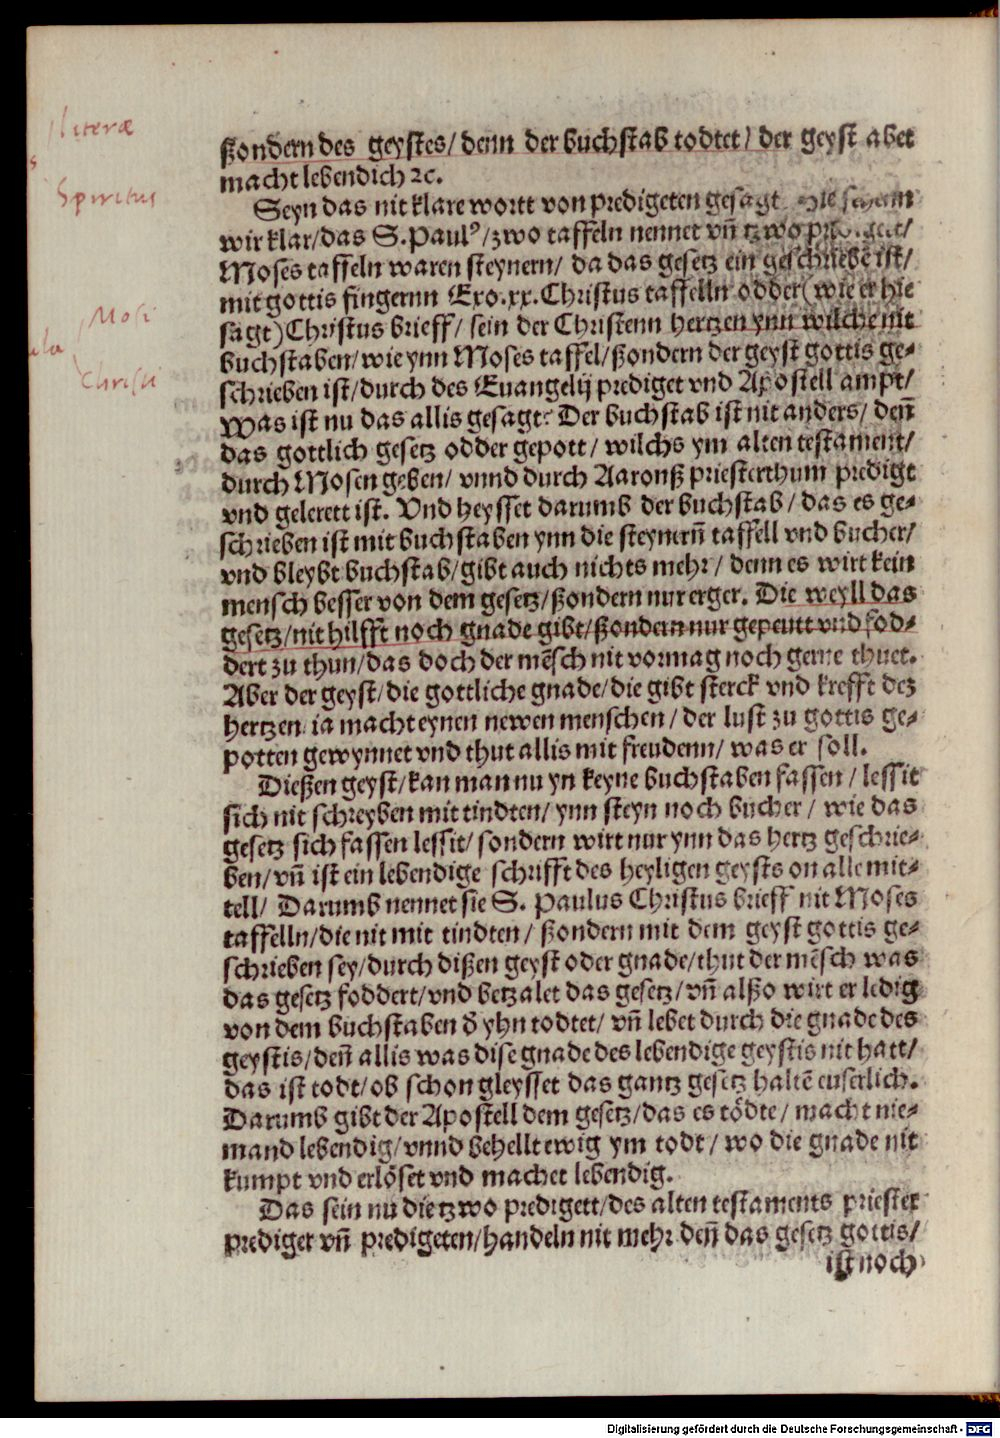 literæ
Spiritus
Mosi
Christi
ßondern des geystes/ denn der buchstab todtet/ der geyst aber
macht lebendich ꝛc.
Seyn das nit klare wortt von predigeten gesagt
wir klar/das S.Paulꝰ/zwo taffeln nennet vñ tzwo
Moses taffeln waren steynern/ da das gesetz ein geschriebē ist/
mit gottis fingernn Exo.xx.Christus taffelln odder(wie er hie
sagt)Christus brieff/ sein der Christenn hertzen ynn wilche nit
buchstaben/wie ynn Moses taffel/ßondern der geyst gottis ge⸗
schrieben ist/durch des Euangelij prediget vnd Apostell ampt/
Was ist nu das allis gesagt? Der buchstab ist nit anders/ deñ
das gottlich gesetz odder gepott/ wilchs ym alten testament/
durch Mosen geben/ vnnd durch Aaronß priesterthum predigt
vnd gelerett ist. Vnd heysset darumb der buchstab/ das es ge⸗
schrieben ist mit buchstaben ynn die steynernñ taffell vnd bucher/
vnd bleybt buchstab/gibt auch nichts mehr/ denn es wirt kein
mensch besser von dem gesetz/ßondern nur erger. Die weyll das
gesetz/nit hilfft noch gnade gibt/ßondern nur gepeutt vnd fod⸗
dert zu thun/das doch der mēsch nit vormag noch gerne thuet.
Aber der geyst/die gottliche gnade/die gibt sterck vnd krefft dez
hertzen/ ia macht eynen newen menschen/ der lust zu gottis ge⸗
potten gewynnet vnd thut allis mit freudenn/ was er soll.
Dießen geyst/kan man nu yn keyne buchstaben fassen/ lessit
sich nit schreyben mit tindten/ ynn steyn noch bucher/ wie das
gesetz sich fassen lessit/ sondern wirt nur ynn das hertz geschrie⸗
ben/vñ ist ein lebendige schrifft des heyligen geysts on alle mit⸗
tell/ Darumb nennet sie S. Paulus Christus brieff nit Moses
taffelln/die nit mit tindten/ ßondern mit dem geyst gottis ge⸗
schrieben sey/durch dißen geyst oder gnade/thut der mēsch was
das gesetz foddert/vnd betzalet das gesetz/vñ alßo wirt er ledig
von dem buchstaben d̕ yhn todtet/ vñ lebet durch die gnade des
geystis/deñ allis was dise gnade des lebendige geystis nit hatt/
das ist todt/ob schon gleysset das gantz gesetz haltē euserlich.
Darumb gibt der Apostell dem gesetz/das es tödte/ macht nie⸗
mand lebendig/vnnd behellt ewig ym todt/ wo die gnade nit
kumpt vnd erlöset vnd machet lebendig.
Das sein nu die tzwo predigett/des alten testaments priester
prediger vñ predigeten/handeln nit mehr deñ das gesetz gottis/
ist noch
Digitalisierung gefördert durch die Deutsche Forschungsgemeinschaft - DFG